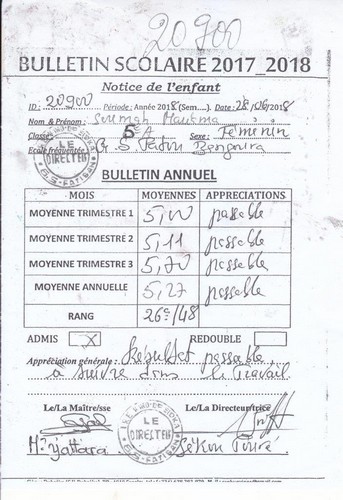 20900
BULLETIN SCOLAIRE 2017_2018
Notice de l'enfant
ID : 20900 Période : Année 2018 (Sem....). Date : 28/06/2018
Nom & Prénom : Soumah
Classe : 5e A Sexe : Féminin
Ecole fréquentée G. S. Bangoura
LE DIRECTEUR
BULLETIN ANNUEL
MOIS MOYENNES APPRECIATIONS
MOYENNE TRIMESTRE 1 5,00 passable
MOYENNE TRIMESTRE 2 5,11 passable
MOYENNE TRIMESTRE 3 5,70 passable
MOYENNE ANNUELLE 5,27 passable
RANG 26e/48
ADMIS X REDOUBLE
Appréciation générale : Résultat passable
à suivre dans le travail
Le/La Maître/sse Le/La Directeur/trice
LE DIRECTEUR
Mr Yattara Sékou Touré